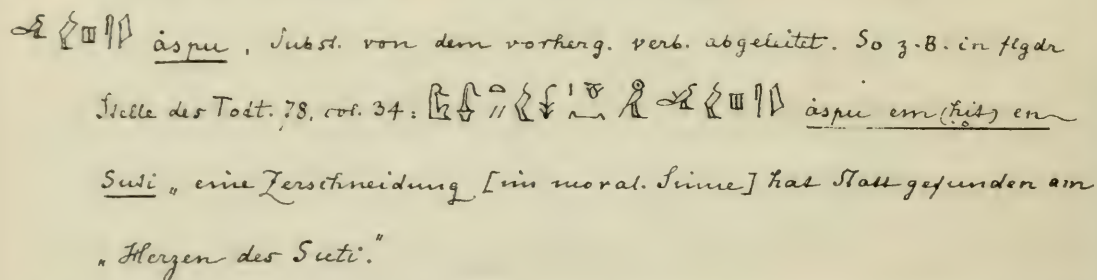 áspu, Subst. von dem vorherg. verb. abgeleitet. So z.B. in flgdr
Stelle des Todt. 78, col. 34: áspu em (hit) en
Suti „eine Zerschneidung [im moral. Sinne] hat Statt gefunden am
„Herzen des Suti."